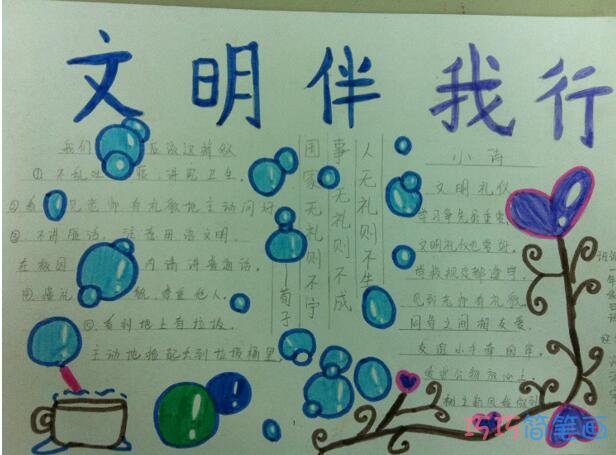 文明伴我行
我们 应该这样做
① 不乱吐 痰,讲究卫生。
② 看 见老师有礼貌地主动问好
③ 不讲脏话,注意用语文明。
在校园 内请讲普通话。
④ 懂礼 貌,尊重他人。
⑤.看到地上有垃圾,
主动地捡起 到垃圾桶里。
人无礼则不生
事无礼则不成
国家无礼则不宁
——荀子
小诗
文明礼仪
学习争先最重要,
文明礼仪也要好。
学校规定都遵守,
见到老师有礼貌
同学之间相友爱,
友谊小手牵的牢。
爱护公物放心上
树立新风我做到
巧巧简笔画